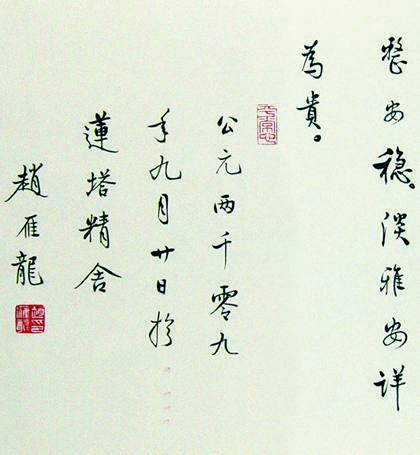 整安稳淡雅安详
為貴。
公元两千零九
年九月廿日於
蓮塔精舍
趙雁龍